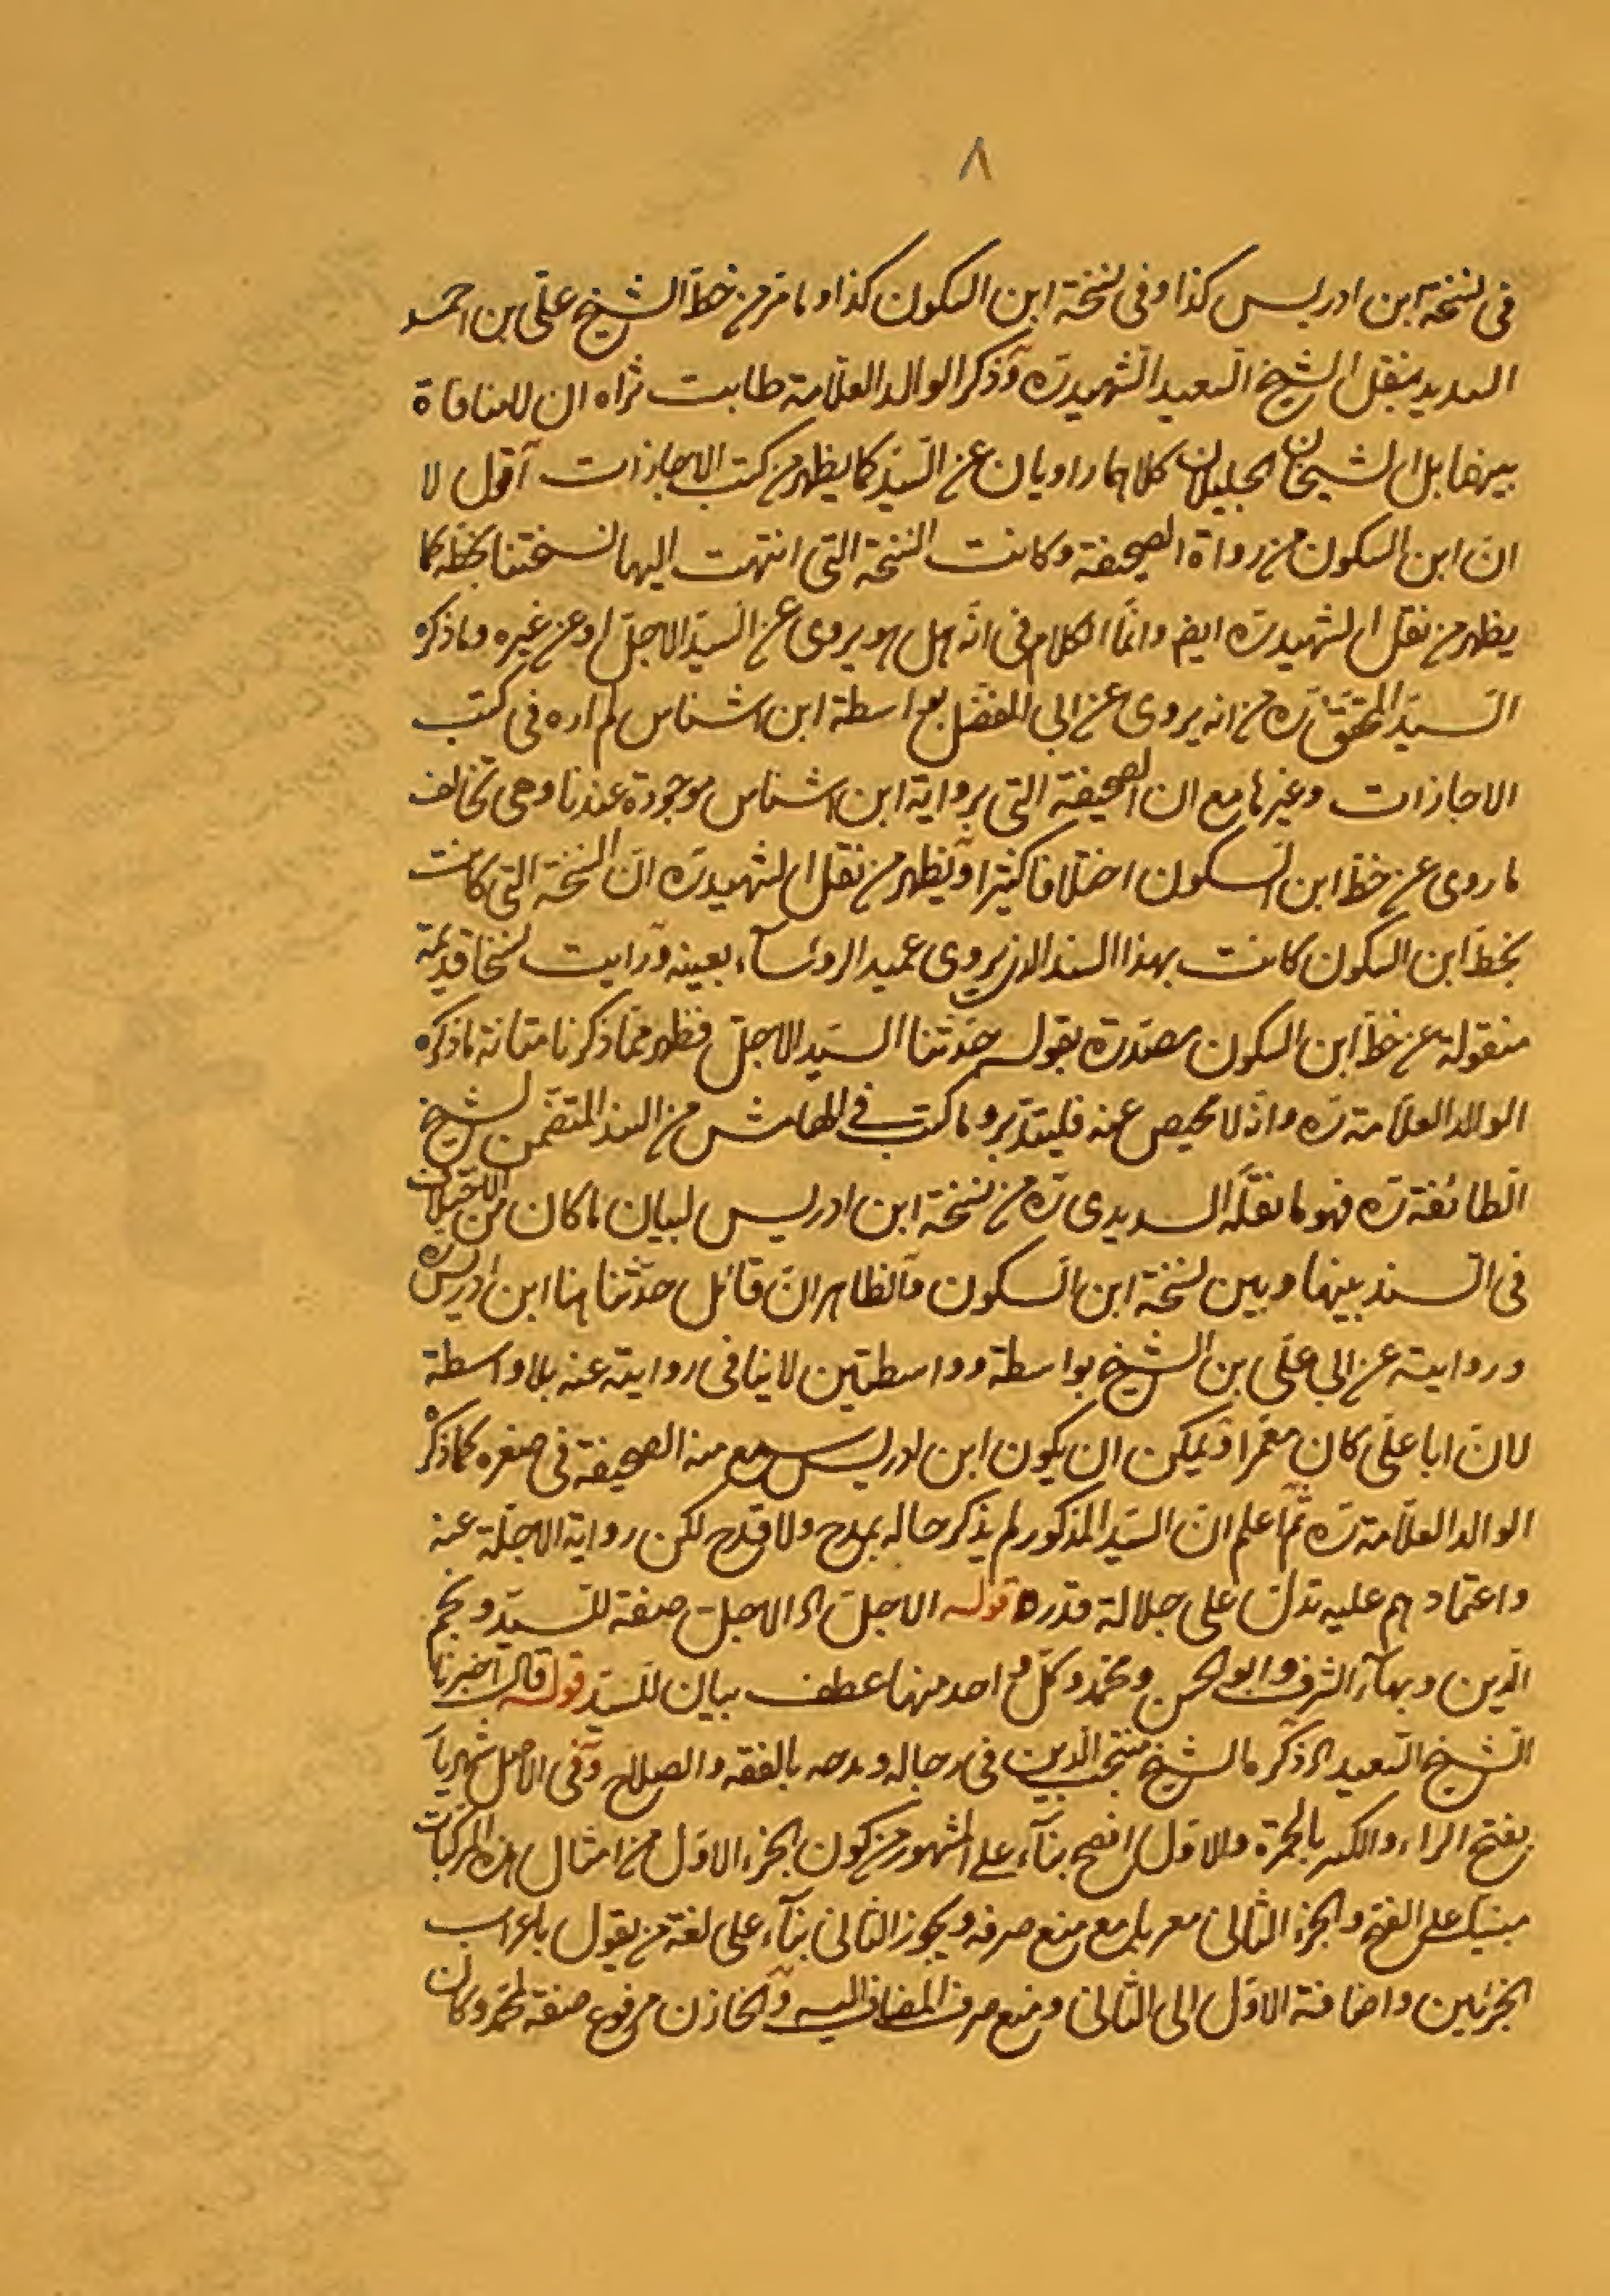 ٨
فى نسخة ابن ادريس كذا وفى نسخة ابن السكون كذا وما مر من خط الشيخ على بن احمد
السديد بنقل الشيخ السعيد الشهيد ره وذكر الوالد العلامة طابت ثراه ان لا منافاة
بينهما بل الشيخان الجليلان كلاهما راويان عن السيد كما يظهر من كتب الاجازات اقول لا
ان ابن السكون من رواة الصحيفة وكانت النسخة التى انتهت اليها نسختنا بخطه كما
يظهر من نقل الشهيد ره ايضا وانما الكلام فى انه هل هو يروى عن السيد الاجل او عن غيره وما ذكره
السيد المحقق ره من انه يروى عن ابى المفضل بواسطة ابن اشناس لم اره فى كتب
الاجازات وغيرها مع ان الصحيفة التى برواية ابن اشناس موجودة عندنا وهى تخالف
ما روى عن خط ابن السكون اختلافا كثيرا ويظهر من نقل الشهيد ره ان النسخة التى كانت
بخط ابن السكون كانت بهذا السند الذى يروى عميد الرؤساء بعينه ورايت نسخا قديمة
منقولة عن خط ابن السكون مصدرة بقوله حدثنا السيد الاجل فظهر مما ذكرنا متانة ما ذكره
الوالد العلامة ره وانه لا محيص عنه فليتدبر وما كتب فى الهامش من السند المتضمن لشيخ
الطائفة ره فهو ما نقله السديدى ره من نسخة ابن ادريس لبيان ما كان من الاختلاف
فى السند بينها وبين نسخة ابن السكون فالظاهر ان قائل حدثنا هنا ابن ادريس ره
وروايته عن ابى على بن الشيخ بواسطة وواسطتين لا ينافى روايته عنه بلا واسطة
لان ابا على كان معمرا ويمكن ان يكون ابن ادريس سمع منه الصحيفة فى صغره كما ذكره
الوالد العلامة ره ثم اعلم ان السيد المذكور لم يذكر حاله بمدح ولا قدح لكن رواية الاجلة عنه
واعتمادهم عليه تدل على جلالة قدره قوله الاجل الاجل صفة للسيد ونجم
الدين وبهاء الشرف وابو الحسن ومحمد وكل واحد منها عطف بيان للسيد قوله قال اخبرنا
الشيخ السعيد ذكره الشيخ منتجب الدين فى رجاله ومدحه بالفقه والصلاح وفى الاصل شهريار
بفتح الراء والكسر بالحمرة والاول افصح بناء على المشهور من كون الجزء الاول من امثال هذه المركبات
مبنيا على الفتح والجزء الثانى معربا مع منع صرفه ويجوز الثانى بناء على لغة من يقول باعراب
الجزئين واضافة الاول الى الثانى ومنع صرف المضاف اليه والخازن مرفوع صفة لمحمد وكان